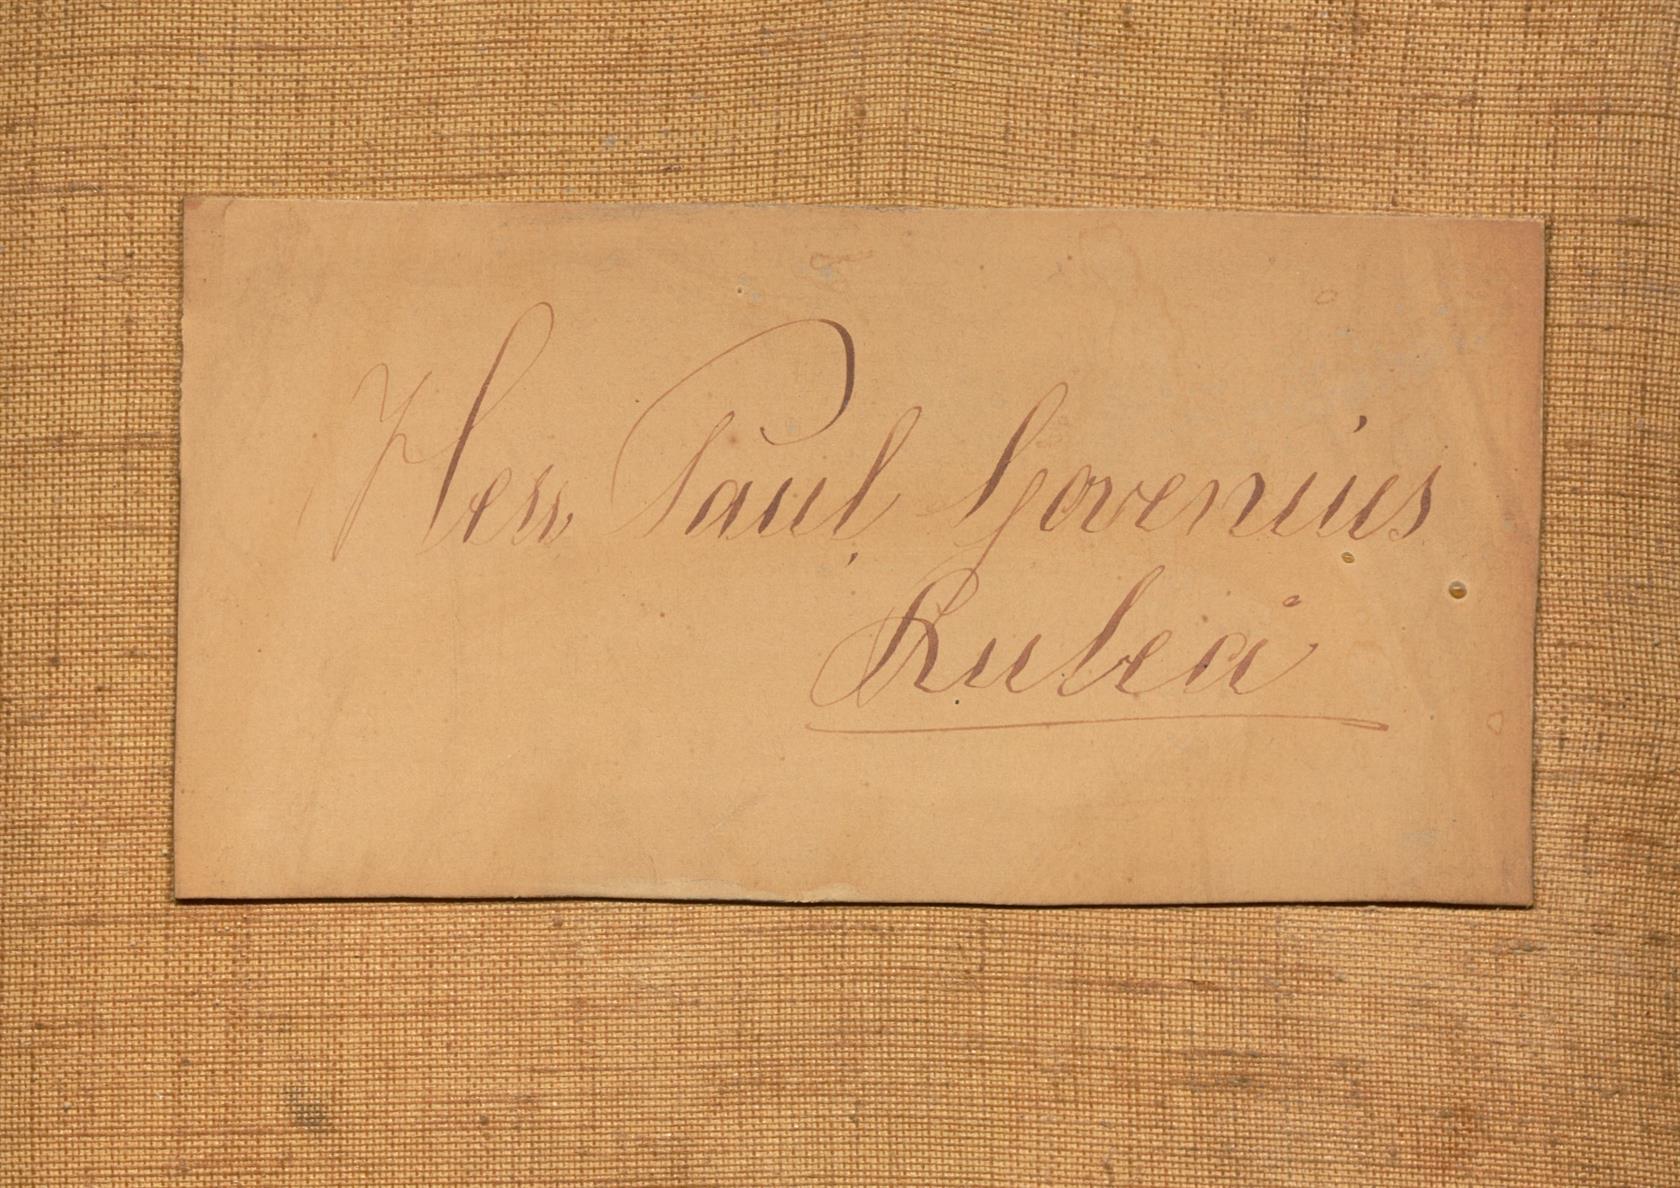 Herr Paul Govenius
Rubeå